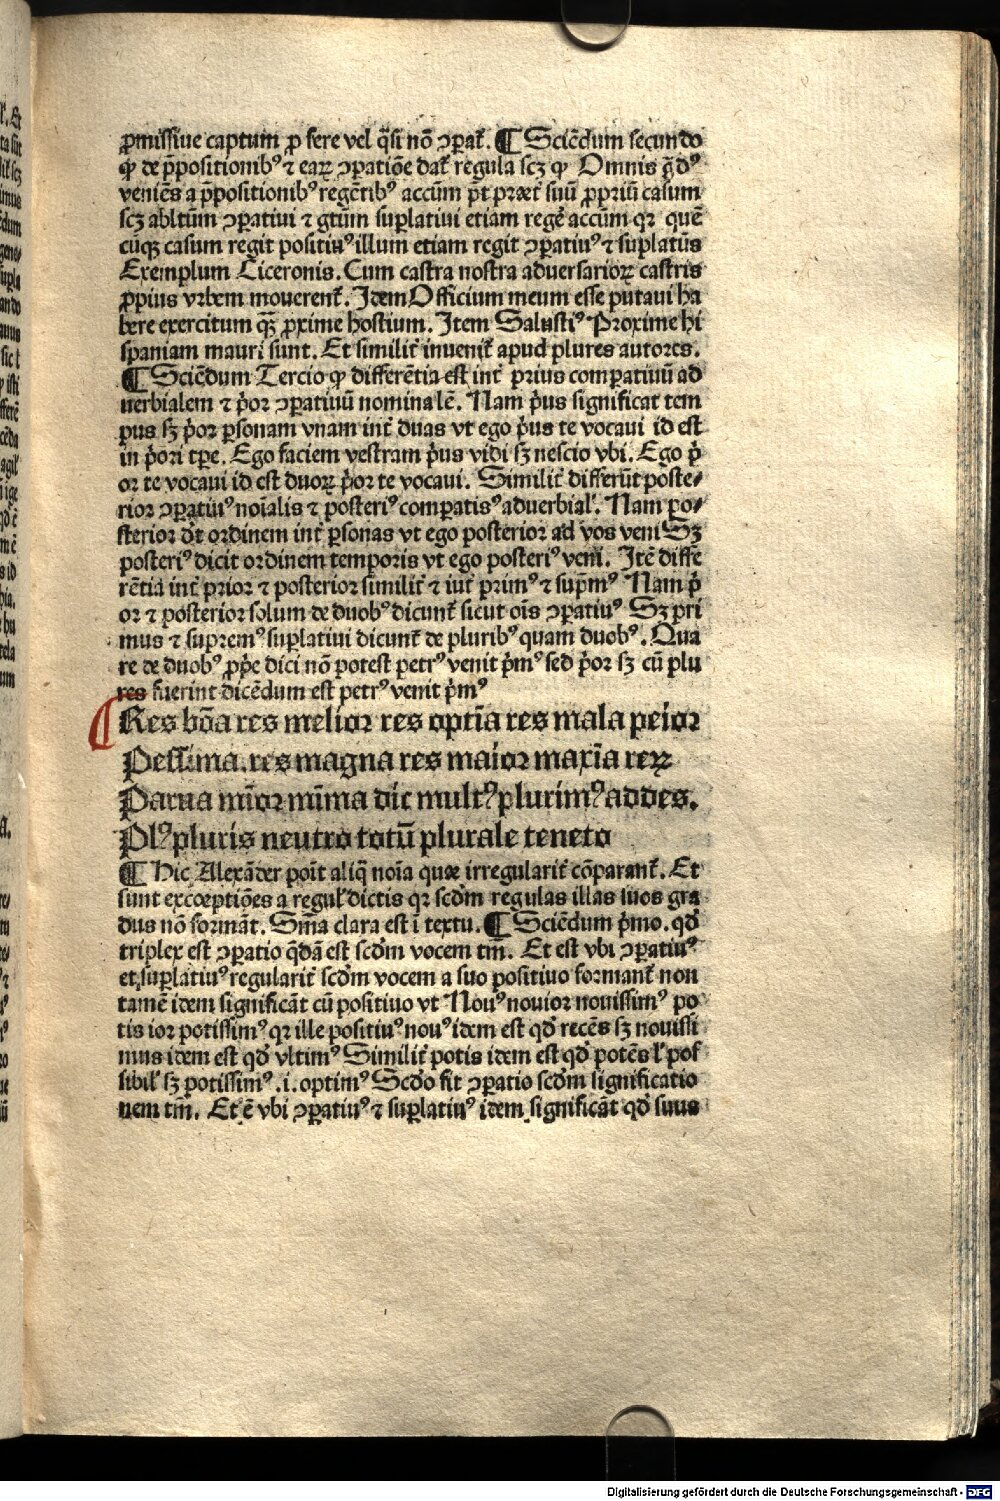 ꝓmissiue captum ꝓ fere vel q̃si nõ ꝯpat᷑. ¶ Sciẽdum secundo
ꝙ de p̃positionibꝰ ⁊ eaꝝ ꝯpatiõe dat᷑ regula scꝫ ꝙ Omnis g̃dꝰ
veniẽs a p̃positionibꝰ regẽtibꝰ accũm p̃t præt᷑ suũ ꝓpriũ casum
scꝫ abltũm ꝯpatiui ⁊ gtũm suꝑlatiui etiam rege᷑ accũm qꝛ quẽ
cũqꝫ casum regit positiuꝰ illum etiam regit ꝯpatiuꝰ ⁊ suꝑlatũs
Exemplum Ciceronis. Cum castra nostra aduersarioꝝ castris
ꝓpius vrbem mouerent᷑. Item Officium meum esse putaui ha
bere exercitum qꝫ̃ ꝓxime hostium. Item Salustiꝰ Proxime hi
spaniam mauri sunt. Et similit᷑ inuenit᷑ apud plures autores.
¶ Sciẽdum Tercio ꝙ differẽtia est int᷑ prius comꝑatiuũ ad
uerbialem ⁊ p̓or ꝯpatiuũ nominalẽ. Nam p̓us significat tem
pus sꝫ p̓or ꝑsonam vnam int᷑ duas vt ego p̓us te vocaui id est
in p̓ori tꝑe. Ego faciem vestram p̓us vidi sꝫ nescio vbi. Ego p̓
or te vocaui id est duoꝝ p̓or te vocaui. Similit᷑ differũt poste⸗
rior ꝯpatiuꝰ noĩalis ⁊ posteriꝰ comꝑatiꝰ aduerbial᷑. Nam po⸗
sterior dr̃t ordinem int᷑ ꝑsonas vt ego posterior ad vos veni Sꝫ
posteriꝰ dicit ordinem temporis vt ego posteriꝰ veni. Itẽ diffe
rẽtia int᷑ prior ⁊ posterior similit᷑ ⁊ int᷑ primꝰ ⁊ supm̃ꝰ Nam p̓
or ⁊ posterior solum de duobꝰ dicunt᷑ sicut oĩs ꝯpatiuꝰ Sꝫ pri
mus ⁊ supremꝰ suꝑlatiui dicunt᷑ de pluribꝰ quam duobꝰ. Qua
re de duobꝰ ꝓpe dici nõ potest petrꝰ venit p̓mꝰ sed p̓or sꝫ cũ plu
res fuerint dicẽdum est petrꝰ venit p̓mꝰ
Res bõa res melior res optĩa res mala peior
Pessima. res magna res maior maxĩa reꝝ
Parua mĩor mĩma dic multꝰ plurimꝰ addes.
Plꝰ pluris neutro totũ plurale teneto
¶ Hic Alexãder poĩt aliq̃ noĩa quæ irregularit᷑ cõparant᷑. Et
sunt exceptiões a regul᷑ dictis qꝛ scd̃m regulas illas suos gra
dus nõ formãt. Sm̃a clara est ĩ textu. ¶ Sciẽdum p̓mo. qd̓
triplex est ꝯpatio q̃dã est scd̃m vocem tm̃. Et est vbi ꝯpatiuꝰ
et suꝑlatiuꝰ regularit᷑ scd̃m vocem a suo positiuo formant᷑ non
tamẽ idem significãt cũ positiuo vt Nouꝰ nouior nouissimꝰ po
tis ior potissimꝰ qꝛ ille positiuꝰ nouꝰ idem est qd̓ recẽs sꝫ nouissi
mus idem est qd̓ vltimꝰ Similit᷑ potis idem est qd̓ potẽs l᷑ pos
sibil᷑ sꝫ potissimꝰ .i. optimꝰ Scd̃o fit ꝯpatio scd̃m significatio
nem tm̃. Et ẽ vbi ꝯpatiuꝰ ⁊ suꝑlatiuꝰ idem significãt qd̓ suus
Digitalisierung gefördert durch die Deutsche Forschungsgemeinschaft - DFG